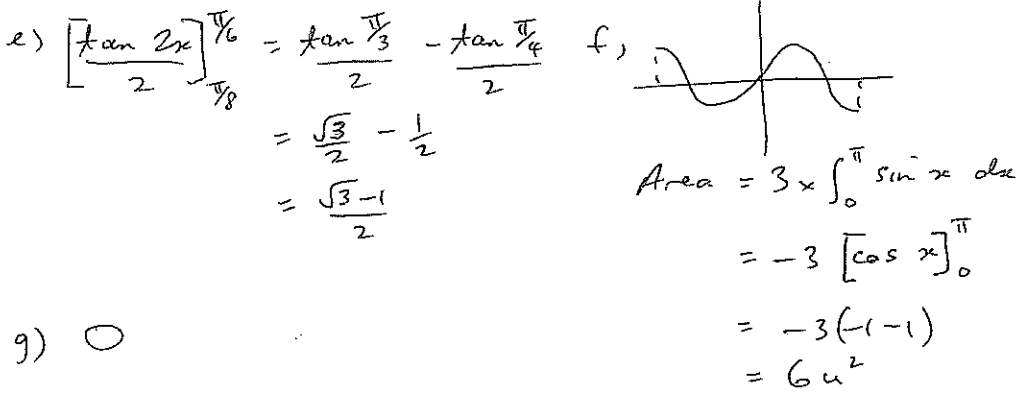 e) [tan 2x / 2]_{π/8}^{π/6} = tan π/3 / 2 - tan π/4 / 2
= √3/2 - 1/2
= √3-1 / 2
f)
Area = 3 x ∫_0^π sin x dx
= -3 [cos x]_0^π
= -3(-1-1)
= 6u²
g) 0